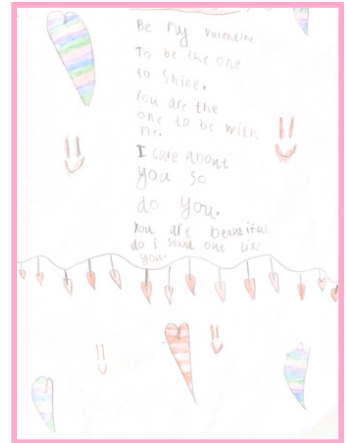 Be my valentine
To be the one
to Shine.
You are the
one to be with
me.
I care about
you so
do you.
You are beautiful
do i stand one like
you.